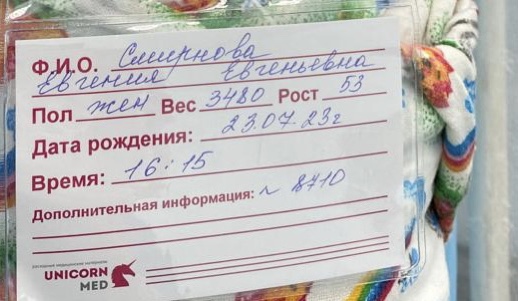 Ф.И.О. Смирнова
Евгения Евгеньевна
Пол жен Вес 3480 Рост 53
Дата рождения: 23.07.23г
Время: 16:15
Дополнительная информация: № 8710
расходные медицинские материалы
UNICORN
MED